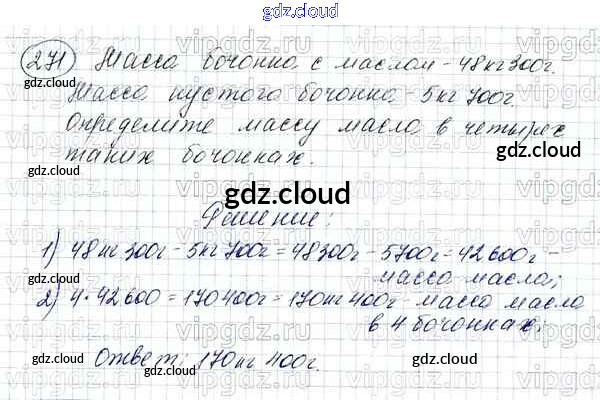 gdz.cloud
271 Масса бочонка с маслом - 48кг300г.
Масса пустого бочонка - 5кг 700г.
Определите массу масла в четырех
таких бочонках.
Решение:
1) 48кг300г - 5кг700г = 48300г - 5700г = 42600г -
масса масла;
2) 4·42600 = 170400г = 170кг400г - масса масла
в 4 бочонках.
Ответ: 170кг 400г.
gdz.cloud
gdz.cloud
gdz.cloud
gdz.cloud
gdz.cloud
gdz.cloud
gdz.cloud
gdz.cloud
gdz.cloud
vipgdz.ru